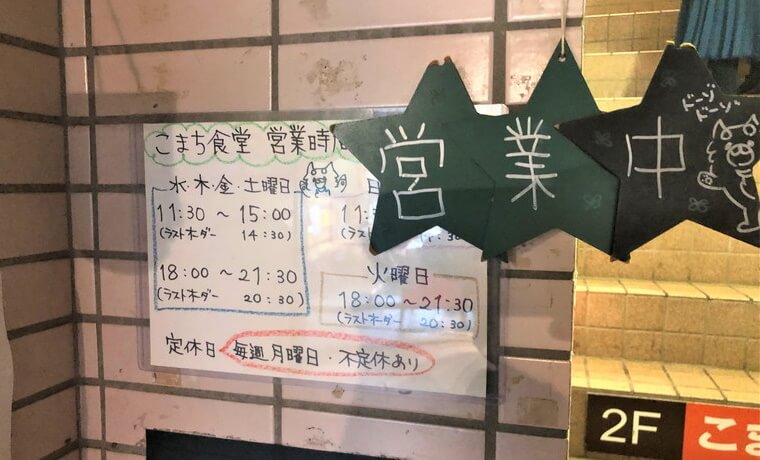 こまち食堂 営業時
水・木・金・土曜日
11:30 ～ 15:00
(ラストオーダー 14:30)
18:00 ～ 21:30
(ラストオーダー 20:30)
日
11:
火曜日
18:00 ～ 21:30
(ラストオーダー 20:30)
定休日 毎週月曜日・不定休あり
営業中
ドーゾ
ドーゾ
2F
こま